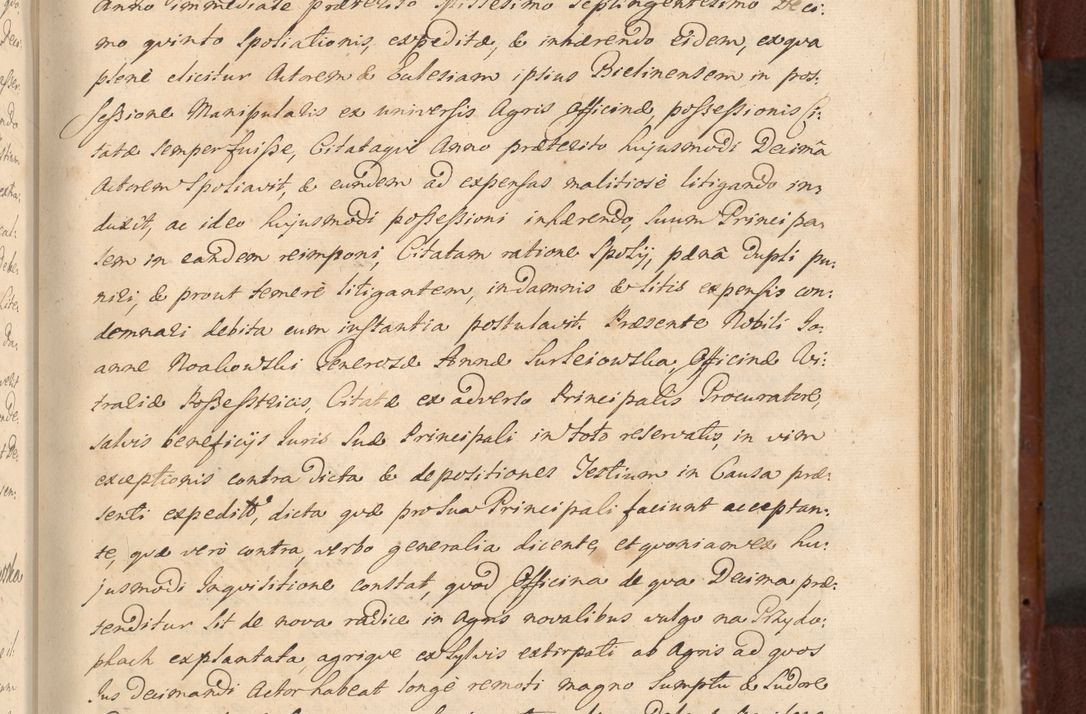 Anno immediate præterito Millesimo Septingentesimo Deci-
mo quinto Spoliationis, expeditæ, & inhærendo Eidem, ex qua
plenè elicitur Actorem & Eclesiam ipsius Bielinensem in pos:
sessione Manipulalis ex universis Agris Officinæ, possessionis Ci:
tatæ semper fuisse, Citatàqve Anno præterito hujusmodi Decimâ
Actorem Spoliavit, & eundem ad expensas malitiosè litigando in,
duxit, ac ideo hujusmodi possessioni inhærendo, suum Principa,
lem in eandem reimponi, Citatam ratione Spolij, pœnâ Dupli pu:
niri, & prout temerè litigantem, in damnis & litis expensis con:
demnari debita cum instantia postulavit. Præsente Nobili Jo,
anne Noakowski Generosæ Annæ Surleiowska, Officinæ Vi:
traliæ Possestricis, Citatæ ex adverso Principalis Procuratore,
salvis beneficijs Juris suæ Principali in toto reservatis, in vim
exceptionis contra dicta & depositiones Testium in Causa præ:
senti expeditorū, dicta quæ pro sua Principali faciunt acceptan:
te, quæ verò contra, verbo generalia dicente, et quoniam ex hu:
jusmodi Inquisitione constat, quod Officina de qua Decima præ:
tenditur sit de nova radice in Agris novalibus vulgo na Przydo:
plach explantata, agrique ex Sylvis extirpati ab Agris ad quos
Jus decimandi Actor habeat longè remoti magno Sumptu & Sudore